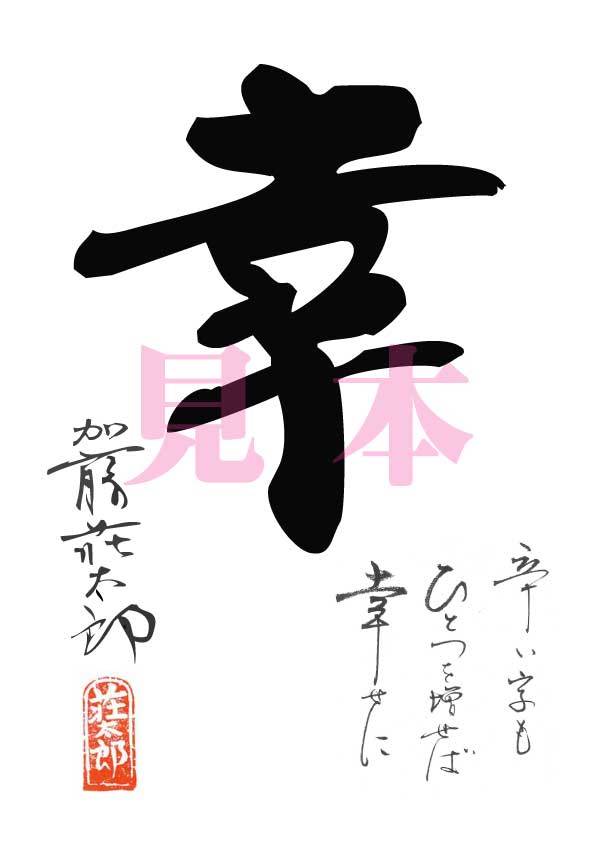 幸
見本
辛い字も
ひとつを増せば
幸せに
加藤荘太郎
荘太郎